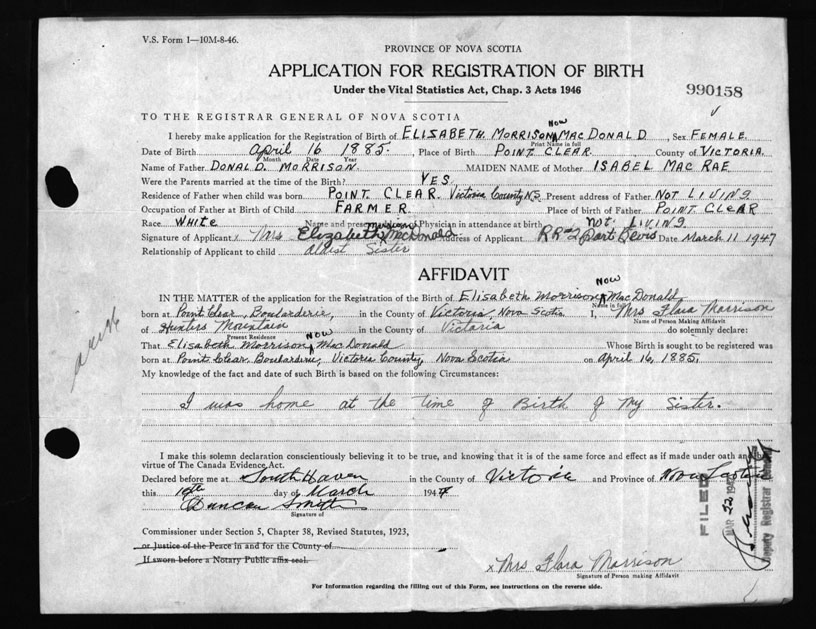 V.S. Form 1—10M-8-46.
PROVINCE OF NOVA SCOTIA
APPLICATION FOR REGISTRATION OF BIRTH
Under the Vital Statistics Act, Chap. 3 Acts 1946
990158
TO THE REGISTRAR GENERAL OF NOVA SCOTIA
I hereby make application for the Registration of Birth of ELISABETH MORRISON NOW MACDONALD, Sex FEMALE.
Print Name in full
Date of Birth April 16 1885., Place of Birth POINT CLEAR. County of VICTORIA.
Month Date Year
Name of Father DONALD MORRISON. MAIDEN NAME of Mother ISABEL MAC RAE
Were the Parents married at the time of the Birth? YES.
Residence of Father when child was born POINT CLEAR. Victoria County N.S. Present address of Father NOT LIVING
Occupation of Father at Birth of Child FARMER Place of birth of Father POINT CLEAR
Race WHITE Name and present Physician in attendance at birth NOT LIVING
Signature of Applicant Mrs Elizabeth McDonald Address of Applicant RR#2 Port Bevis Date March 11 1947
Relationship of Applicant to child Sister
AFFIDAVIT
IN THE MATTER of the application for the Registration of the Birth of Elisabeth Morrison NOW MacDonald
Name in full
born at Point Clear, Boularderie, in the County of Victoria, Nova Scotia. I, Mrs Flora Morrison
Name of Person Making Affidavit
of Hunters Mountain in the County of Victoria do solemnly declare:
Present Residence
That Elisabeth Morrison NOW MacDonald Whose Birth is sought to be registered was
born at Point Clear, Boularderie, Victoria County, Nova Scotia on April 16, 1885,
My knowledge of the fact and date of such Birth is based on the following Circumstances:
I was home at the time of Birth of My Sister.
I make this solemn declaration conscientiously believing it to be true, and knowing that it is of the same force and effect as if made under oath and by
virtue of The Canada Evidence Act.
Declared before me at South Haven in the County of Victoria and Province of Nova Scotia
this day of March 1947
Duncan Smith
Signature of
Commissioner under Section 5, Chapter 38, Revised Statutes, 1923,
or Justice of the Peace in and for the County of
If sworn before a Notary Public affix seal.
x Mrs Flora Morrison
Signature of Person making Affidavit
For Information regarding the filling out of this Form, see instructions on the reverse side.
FILED
MAR 22 1947
Deputy Registrar General